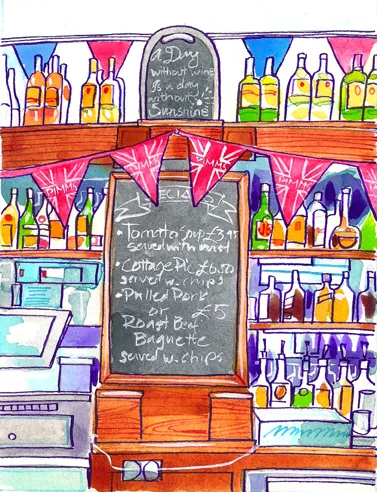 a Day
without wine
is a day
without
Sunshine
PIMMS
PIMMS
PIMMS
PIMMS
PIMMS
SPECIALS
• Tomato Soup £3.95
served with
• Cottage Pie £6.50
served w. chips
• Pulled Pork
or £5
Roast Beef
Baguette
served w. chips